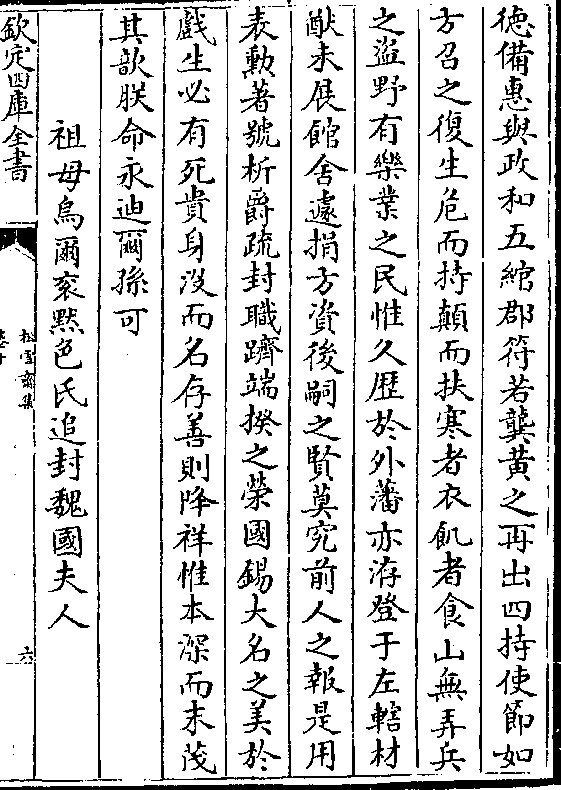 德備惠與政和五綰郡符若龔黄之再出四持使節如
方召之復生危而持顛而扶寒者衣飢者食山無弄兵
之盜野有樂業之民惟久歴於外藩亦洊登于左轄材
猷未展館舍遽捐方資後嗣之賢莫究前人之報是用
表勲著號析爵疏封職躋端揆之榮國錫大名之美於
戲生必有死貴身沒而名存善則降祥惟本深而末茂
其歆朕命永迪爾孫可
祖母烏爾衮黙色氏追封魏國夫人
欽定四庫全書
松雪齋集
卷十
六